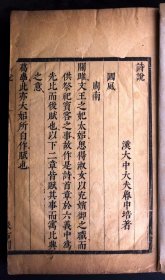 詩說
漢大中大夫魯申培著
國風
周南
關雎文王之妃太姒思得淑女以充嬪御之職而
供祭祀賓客之事故作是詩首章於六義中爲
先比而後賦也以下二章皆賦其事而寓比興
之意
葛覃此亦太姒所自作賦也